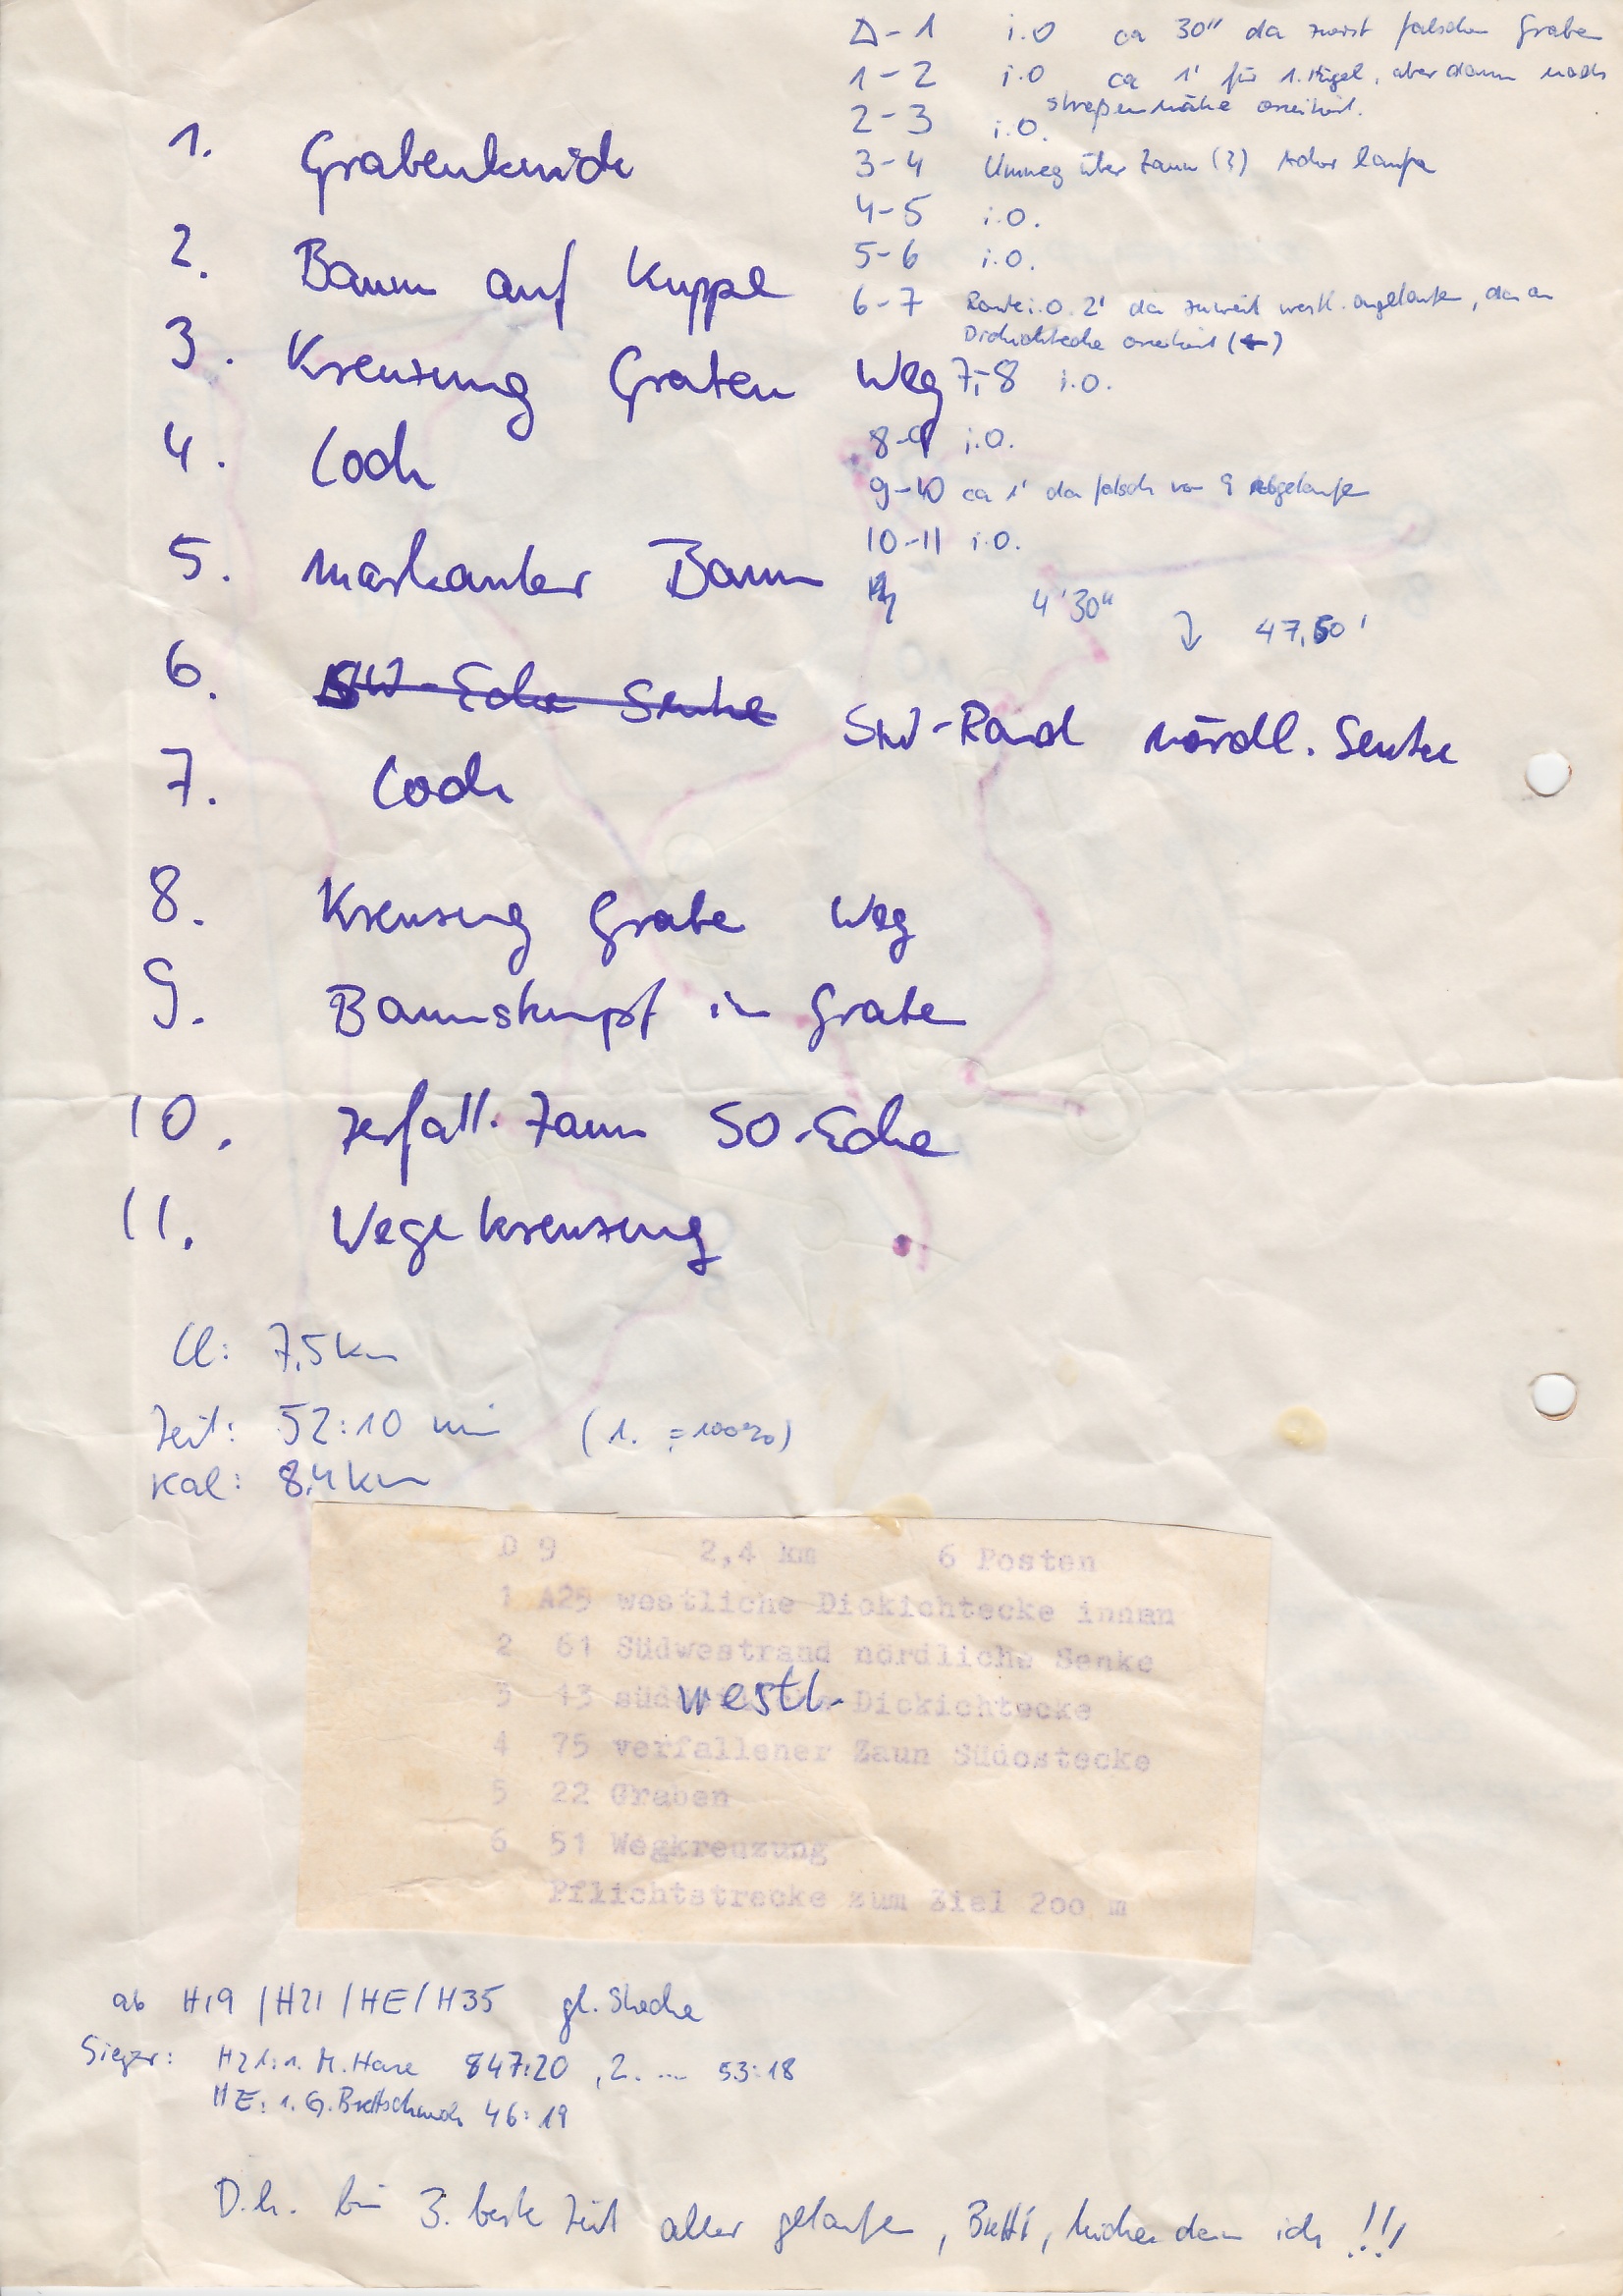 1. Grabenknick
2. Baum auf Kuppe
3. Kreuzung Graben Weg
4. Loch
5. markanter Baum
6. SW-Ecke Senke SW-Rand nördl. Senke
7. Loch
8. Kreuzung Grabe Weg
9. Baumstumpf in Graben
10. zerfall. Zaun SO-Ecke
11. Wegekreuzung
Δ-1 i.O ca 30" da zuerst falscher Graben
1-2 i.O ca 1' für 1. Hügel, aber dann nach
straßennähe orientiert.
2-3 i.O.
3-4 Umweg über Zaun (?) laufen
4-5 i.O.
5-6 i.O.
6-7 Route i.O. 2' da zuweit westl. angelaufen, da an
Dickichtecke orientiert (←)
7-8 i.O.
8-9 i.O.
9-10 ca 1' da falsch von 9 abgelaufen
10-11 i.O.
4'30" 47,50'
Ll: 7,5 km
Zeit: 52:10 min (1. = 100%)
Kal: 8,4 km
D 9 2,4 km 6 Posten
1 A25 westliche Dickichtecke innen
2 61 Südwestrand nördliche Senke
3 43 westl. Dickichtecke
4 75 verfallener Zaun Südostecke
5 22 Graben
6 51 Wegkreuzung
Pflichtstrecke zum Ziel 200 m
ab H19 / H21 / HE / H35 gl. Strecke
Sieger: H21: 1. M. 47:20, 2. .... 53:18
HE: 1. G. 46:19
D.h. bin 3. beste Zeit aller gelaufen, Bretti, dann ich !!!